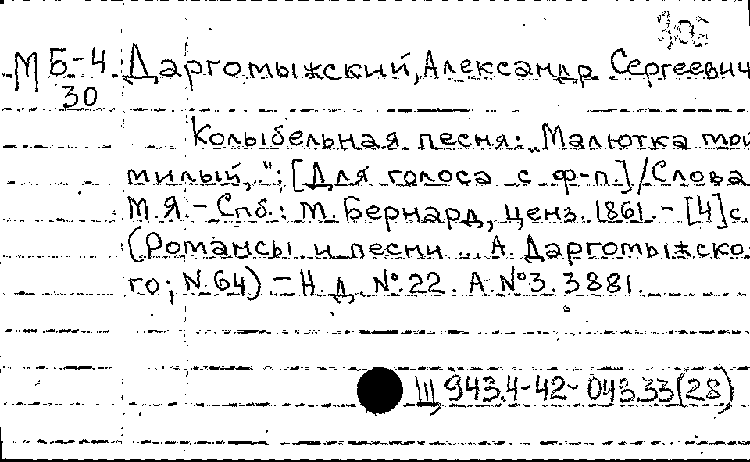 М Б-4 Даргомыжский, Александр Сергеевич
30
Колыбельная песня: „Малютка мой
милый,": [Для голоса с ф-п.] / Слова
М.Я. - Спб.: М. Бернард, ценз. 1861. - [4] с.
(Романсы и песни .. А. Даргомыжско
го; N. 64) - Н.д. №.22. А.№3.3881.
Щ 943.4-42-043.33(28)